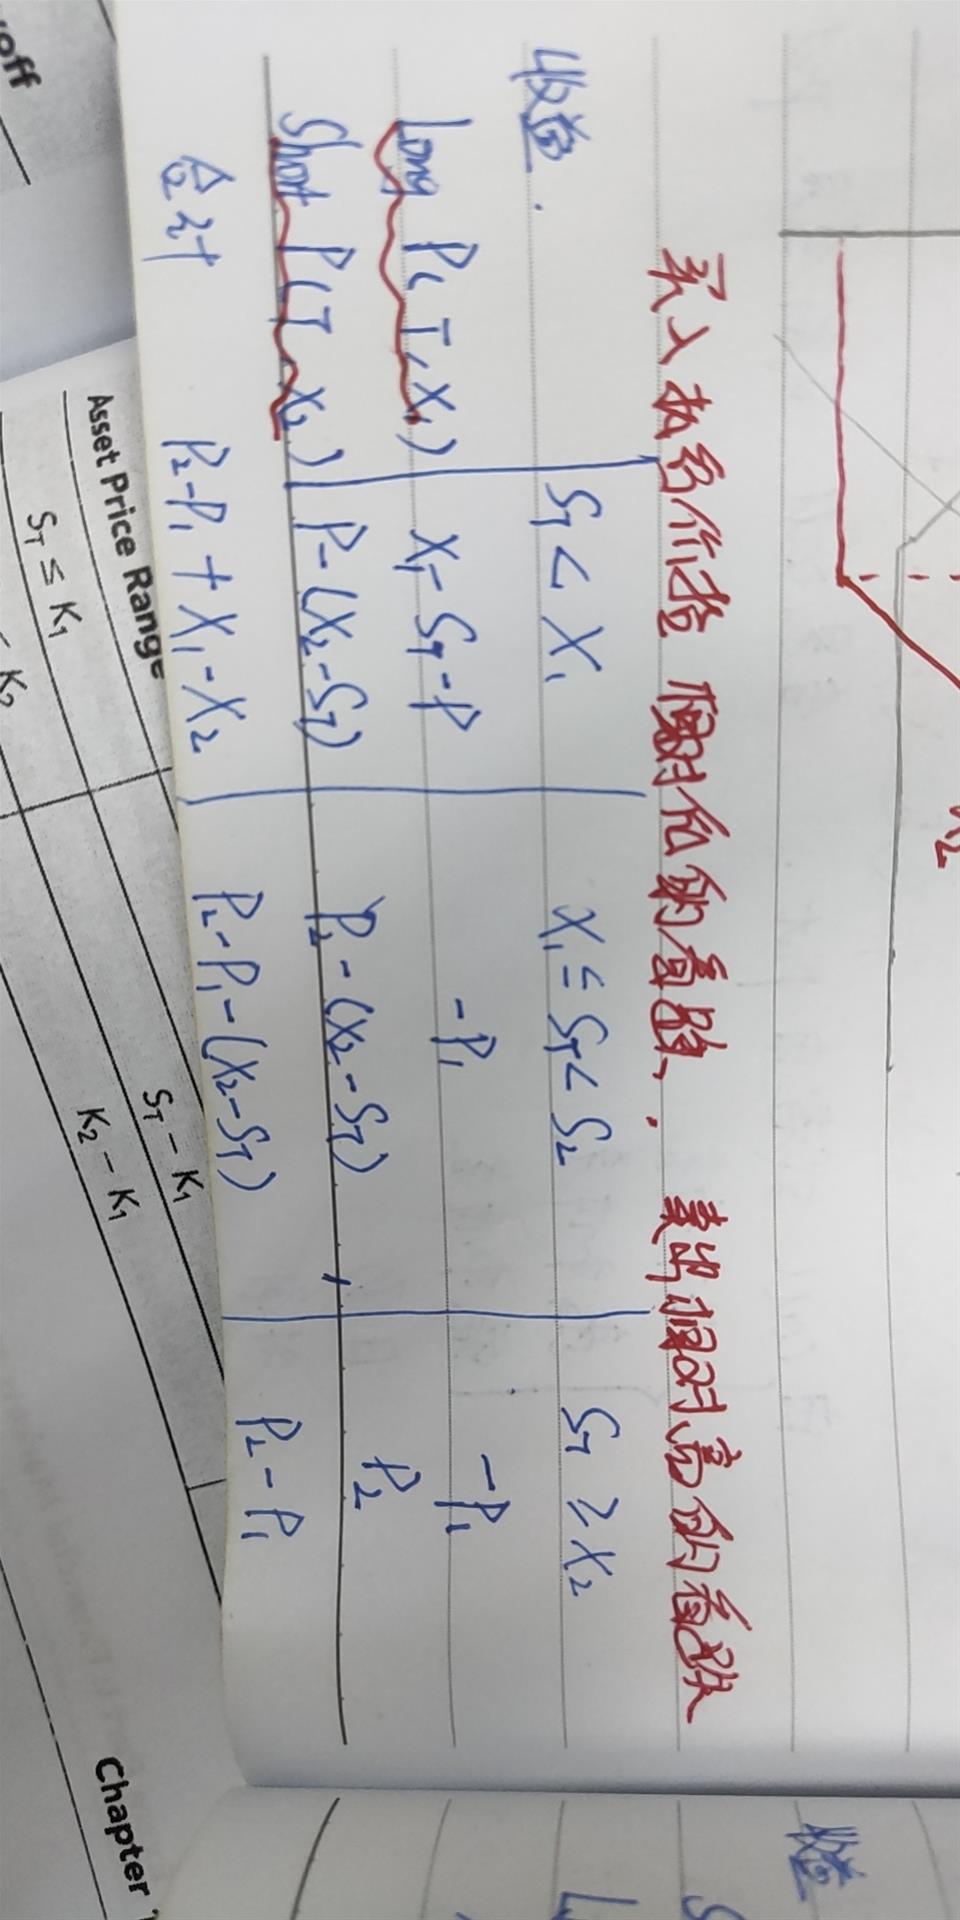 X2
买入执行价格 相对低的看跌, 卖出相对高的看跌
收益.
ST < X1
X1 ≤ ST < S2
ST ≥ X2
Long P( T, X1)
X1 - ST - P
- P1
- P1
Short P(T, X2)
P - (X2 - ST)
P2 - (X2 - ST)
P2
合计
P2 - P1 + X1 - X2
P2 - P1 - (X2 - ST)
P2 - P1
Asset Price Range
ST ≤ K1
ST − K1
K2 − K1
K2
Chapter
收益
S
L